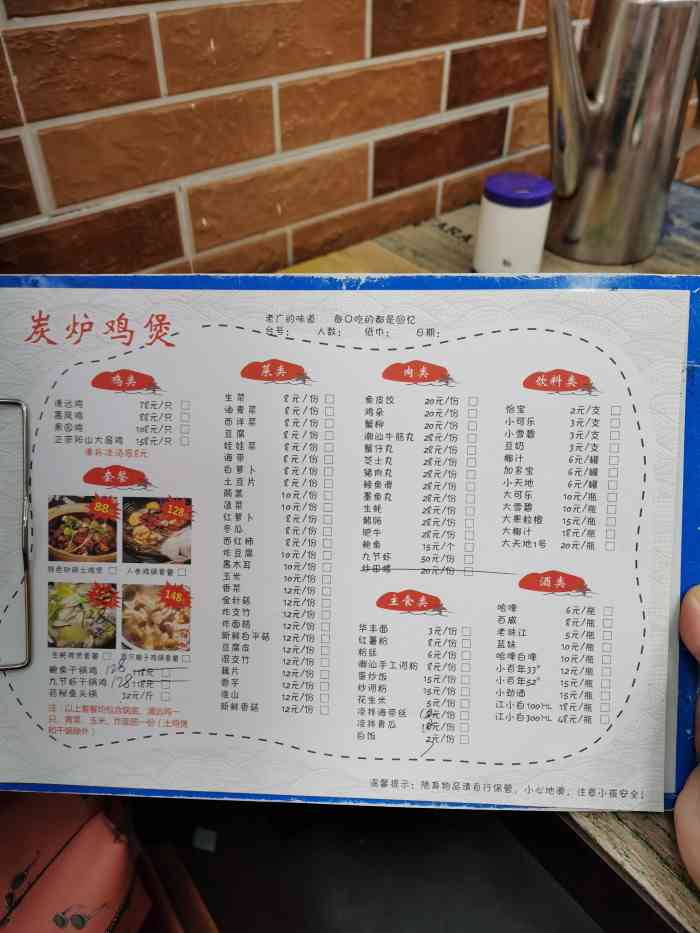 炭炉鸡煲
老广的味道 每口吃的都是回忆
台号： 人数： 纸巾： 日期：
鸡类
清远鸡 78元/只
黑凤鸡 88元/只
果园鸡 108元/只
正宗阳山大扁鸡 158元/只
套餐
88
128
148
特色砂锅土鸡煲
人参鸡锅套餐
生蚝鸡煲套餐
鲍鱼干锅鸡 128
九节虾干锅鸡 128
石斑鱼头锅 32元/斤
注：以上套餐均包含锅底、清远鸡一
只、青菜、玉米、炸腐筋一份（土鸡煲
和干锅除外）
菜类
生菜 8元/份
油麦菜 8元/份
西洋菜 8元/份
豆腐 8元/份
娃娃菜 8元/份
海带 8元/份
白萝卜 8元/份
土豆片 8元/份
茼蒿 10元/份
菠菜 10元/份
红萝卜 8元/份
冬瓜 8元/份
西红柿 8元/份
炸豆腐 10元/份
黑木耳 10元/份
玉米 10元/份
香菜 12元/份
金针菇 12元/份
炸支竹 12元/份
炸面筋 12元/份
新鲜白平菇 12元/份
豆腐皮 12元/份
湿支竹 12元/份
藕片 12元/份
香芋 12元/份
淮山 12元/份
新鲜香菇 12元/份
肉类
鱼皮饺 20元/份
鸡杂 20元/份
蟹柳 20元/份
潮汕牛筋丸 28元/份
蟹仔丸 28元/份
芝士丸 28元/份
猪肉丸 28元/份
鲮鱼滑 28元/份
墨鱼丸 28元/份
生蚝 28元/份
鹅肠 28元/份
肥牛 28元/份
鲍鱼 15元/个
九节虾 50元/份
炒田螺 20元/份
主食类
华丰面 3元/份
红薯粉 8元/份
粉廷 6元/份
潮汕手工河粉 8元/份
蛋炒饭 15元/份
炒河粉 15元/份
花生米 5元/份
凉拌海带丝
凉拌青瓜
白饭 2元/份
饮料类
怡宝 2元/支
小可乐 3元/支
小雪碧 3元/支
豆奶 3元/支
椰汁 6元/罐
加多宝 6元/罐
小天地 6元/罐
大可乐 10元/瓶
大雪碧 10元/瓶
大果粒橙 15元/瓶
大椰汁 18元/瓶
大天地1号 20元/瓶
酒类
哈啤 6元/瓶
百威 8元/瓶
老珠江 5元/瓶
蓝妹 10元/瓶
哈啤白啤 10元/瓶
小百年33° 12元/瓶
小百年52° 15元/瓶
小劲酒 15元/瓶
江小白100ML 18元/瓶
江小白300ML 68元/瓶
温馨提示：随身物品请自行保管，小心地滑，注意小孩安全；